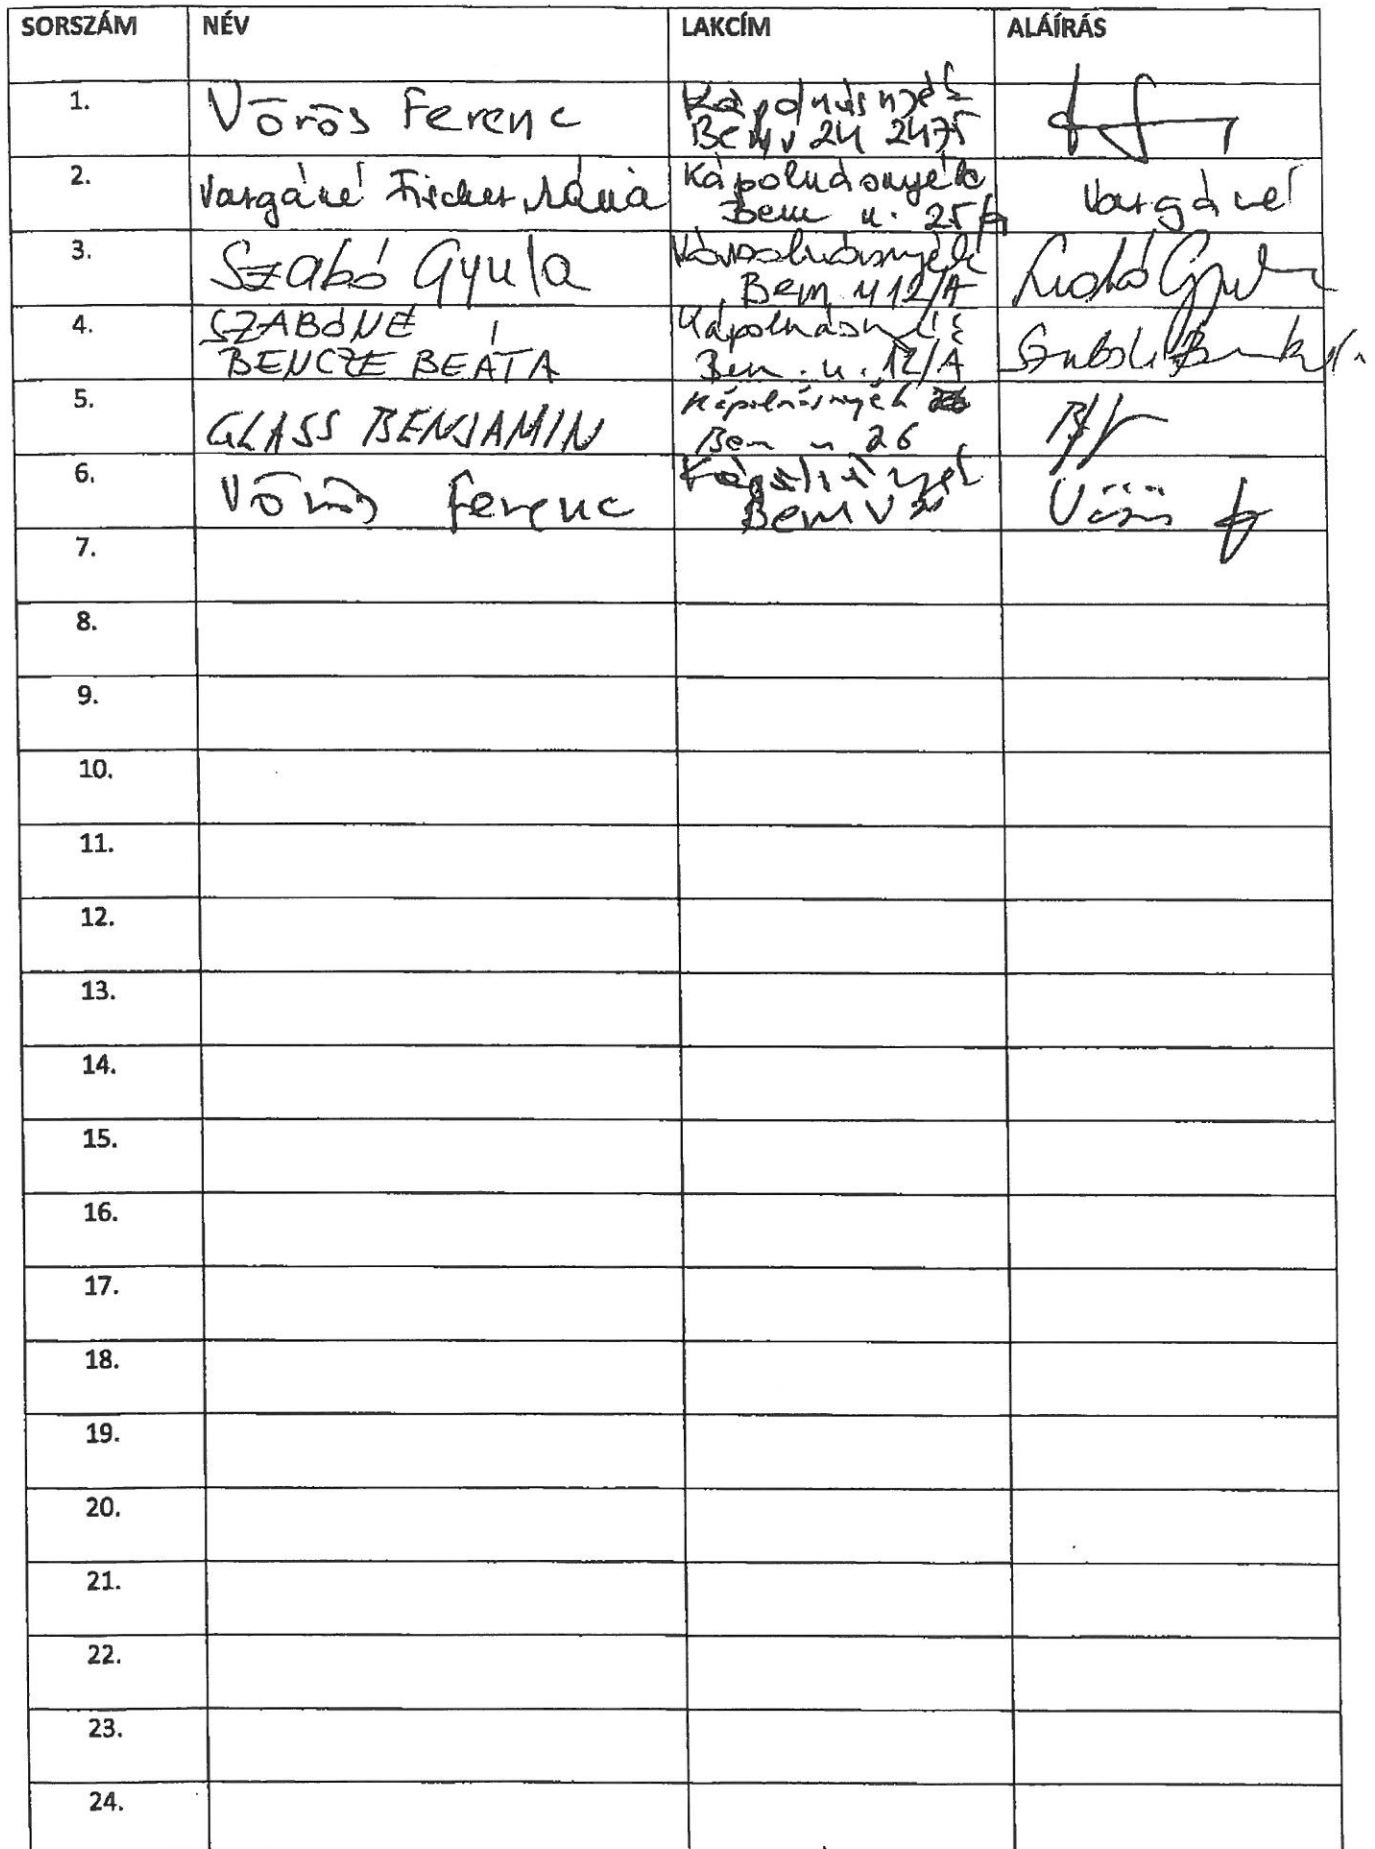 SORSZÁM NÉV LAKCÍM ALÁÍRÁS
1. Vörös Ferenc Kápolnásnyék
Bem u 24 2475
2. Vargáné Fischer Mária Kápolnásnyék
Bem u. 25/A Vargáné
3. Szabó Gyula Kápolnásnyék
Bem u 12/A Szabó Gyula
4. SZABÓNÉ Kápolnásnyék
BENCZE BEÁTA Bem. u. 12/A
5. GLASS BENJAMIN Kápolnásnyék
Bem u 26
6. Vörös Ferenc Kápolnásnyék
Bem Vörös
7.
8.
9.
10.
11.
12.
13.
14.
15.
16.
17.
18.
19.
20.
21.
22.
23.
24.